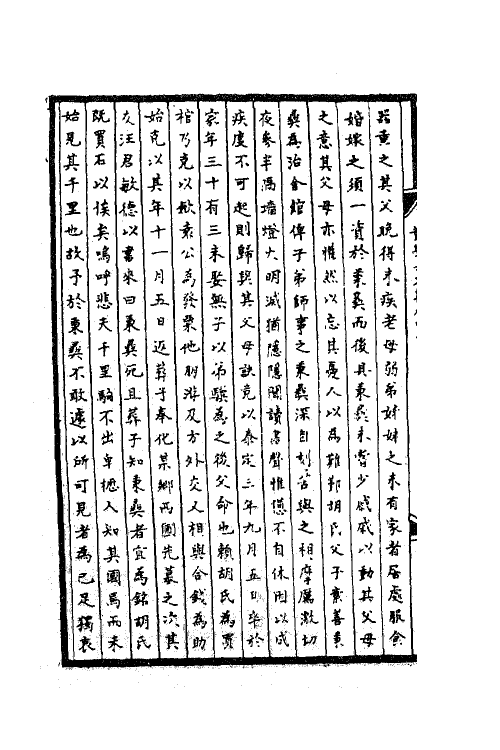 器重之其父晚得末疾老母弱弟妹妹之未有家者居處服食
婚嫁之須一資於秉彞而後具秉彞未嘗少戚戚以動其父母
之意其父母亦惟然以忘其憂人以為難鄞胡氏父子素善秉
彞為治舍館俾子弟師事之秉彞深自刻苦與之相摩厲激切
夜參半隔墻燈火明滅猶隱隱聞讀書聲惟恐不自休用以成
疾度不可起則歸與其父母訣竟以泰定三年九月五日卒於
家年三十有三未娶無子以弟騄為之後父命也賴胡氏為買
棺乃克以歛袁公為發粟他朋游及方外交又相與合錢為助
始克以其年十一月五日返葬于奉化某鄉西圃先墓之次其
友汪君敏德以書來曰秉彞死且葬子知秉彞者宜為銘胡氏
既買石以俟矣嗚呼悲夫千里駒不出卑櫪人知其國馬而未
始見其千里也故予於秉彞不敢遽以所可見者為已足獨哀